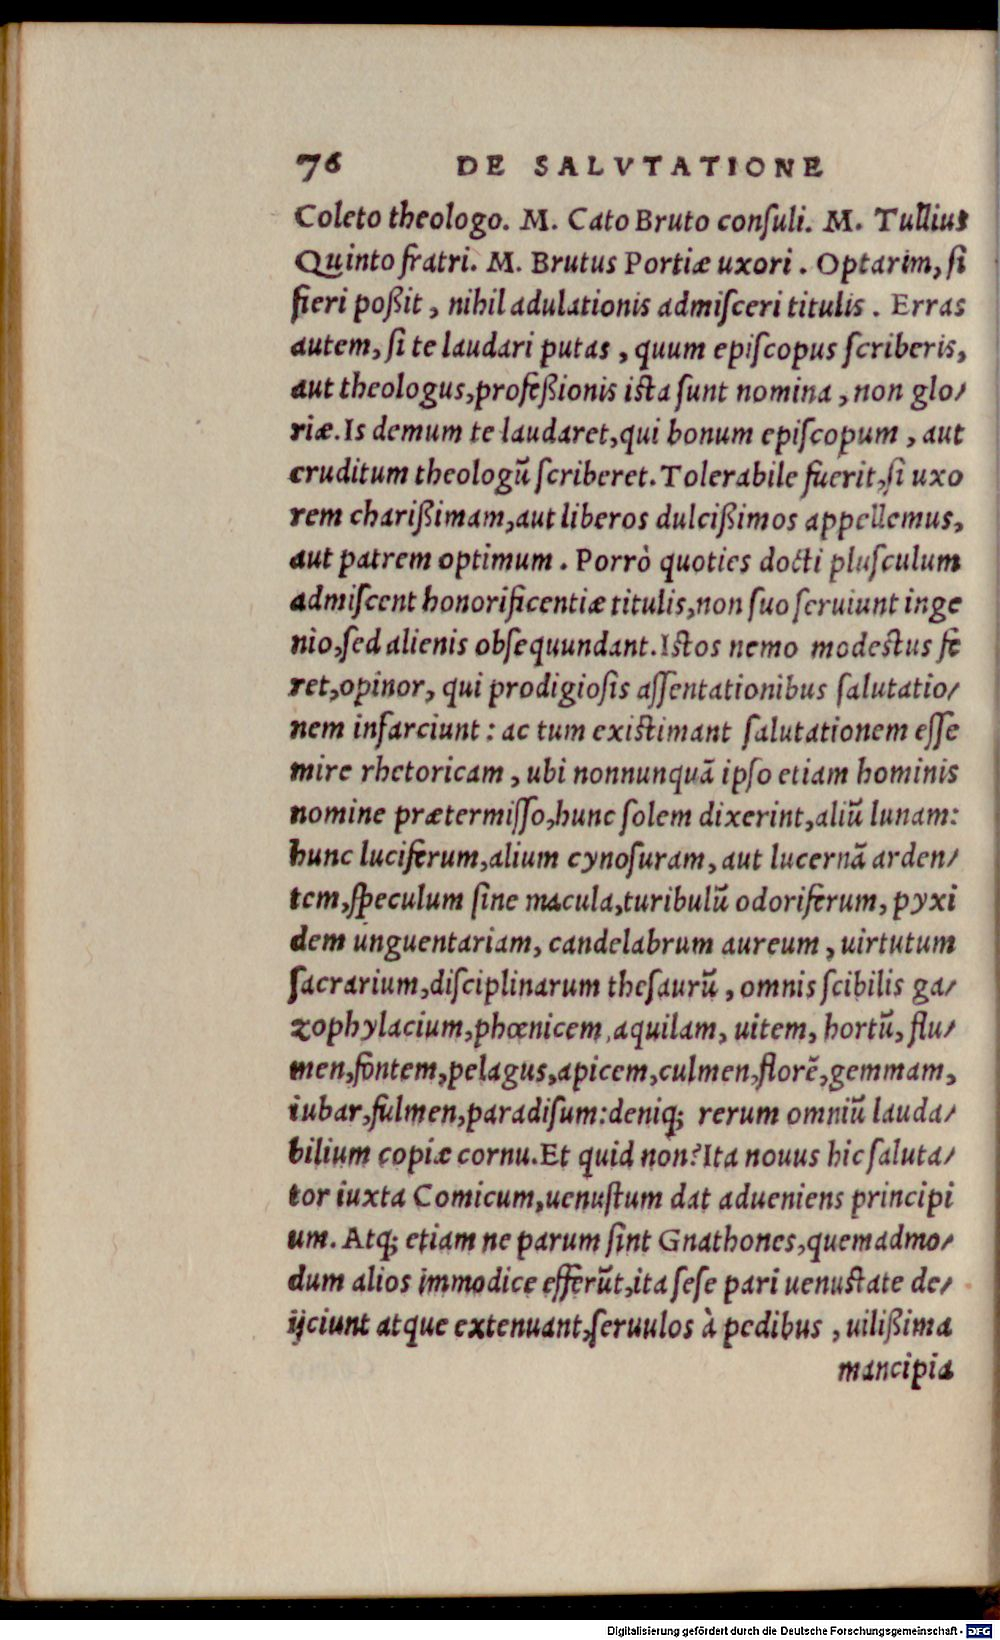 76 DE SALVTATIONE
Coleto theologo. M. Cato Bruto conſuli. M. Tullius
Quinto fratri. M. Brutus Portiæ uxori. Optarim, ſi
fieri poßit, nihil adulationis admiſceri titulis. Erras
autem, ſi te laudari putas, quum epiſcopus ſcriberis,
aut theologus, profeßionis iſta ſunt nomina, non glo/
riæ. Is demum te laudaret, qui bonum epiſcopum, aut
eruditum theologū ſcriberet. Tolerabile fuerit, ſi uxo
rem charißimam, aut liberos dulcißimos appellemus,
aut patrem optimum. Porrò quoties docti pluſculum
admiſcent honorificentiæ titulis, non ſuo ſeruiunt inge
nio, ſed alienis obſequundant. Iſtos nemo modeſtus fe
ret, opinor, qui prodigioſis aſſentationibus ſalutatio/
nem infarciunt: ac tum exiſtimant ſalutationem eſſe
mire rhetoricam, ubi nonnunquā ipſo etiam hominis
nomine prætermiſſo, hunc ſolem dixerint, aliū lunam:
hunc luciferum, alium cynoſuram, aut lucernā arden/
tem, ſpeculum ſine macula, turibulū odoriferum, pyxi
dem unguentariam, candelabrum aureum, uirtutum
ſacrarium, diſciplinarum theſaurū, omnis ſcibilis ga/
zophylacium, phœnicem, aquilam, uitem, hortū, flu/
men, fontem, pelagus, apicem, culmen, florē, gemmam,
iubar, fulmen, paradiſum: deniq; rerum omniū lauda/
bilium copiæ cornu. Et quid non? Ita nouus hic ſaluta/
tor iuxta Comicum, uenuſtum dat adueniens principi
um. Atq; etiam ne parum ſint Gnathones, quemadmo/
dum alios immodice efferūt, ita ſeſe pari uenuſtate de/
ijciunt atque extenuant, ſeruulos à pedibus, uilißima
mancipia
Digitalisierung gefördert durch die Deutsche Forschungsgemeinschaft - DFG